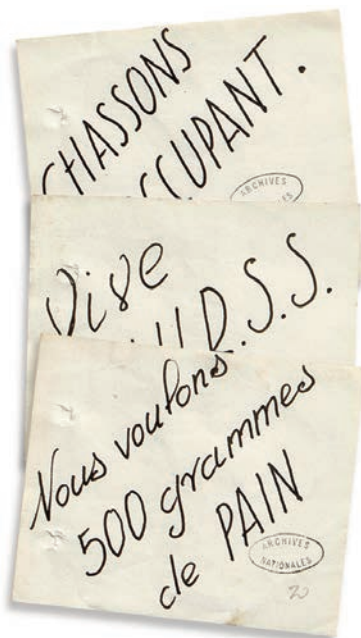 CHASSONS
CCUPANT.
ARCHIVES
Vive
U.R.S.S.
Nous voulons
500 grammes
de PAIN
ARCHIVES
NATIONALES
20